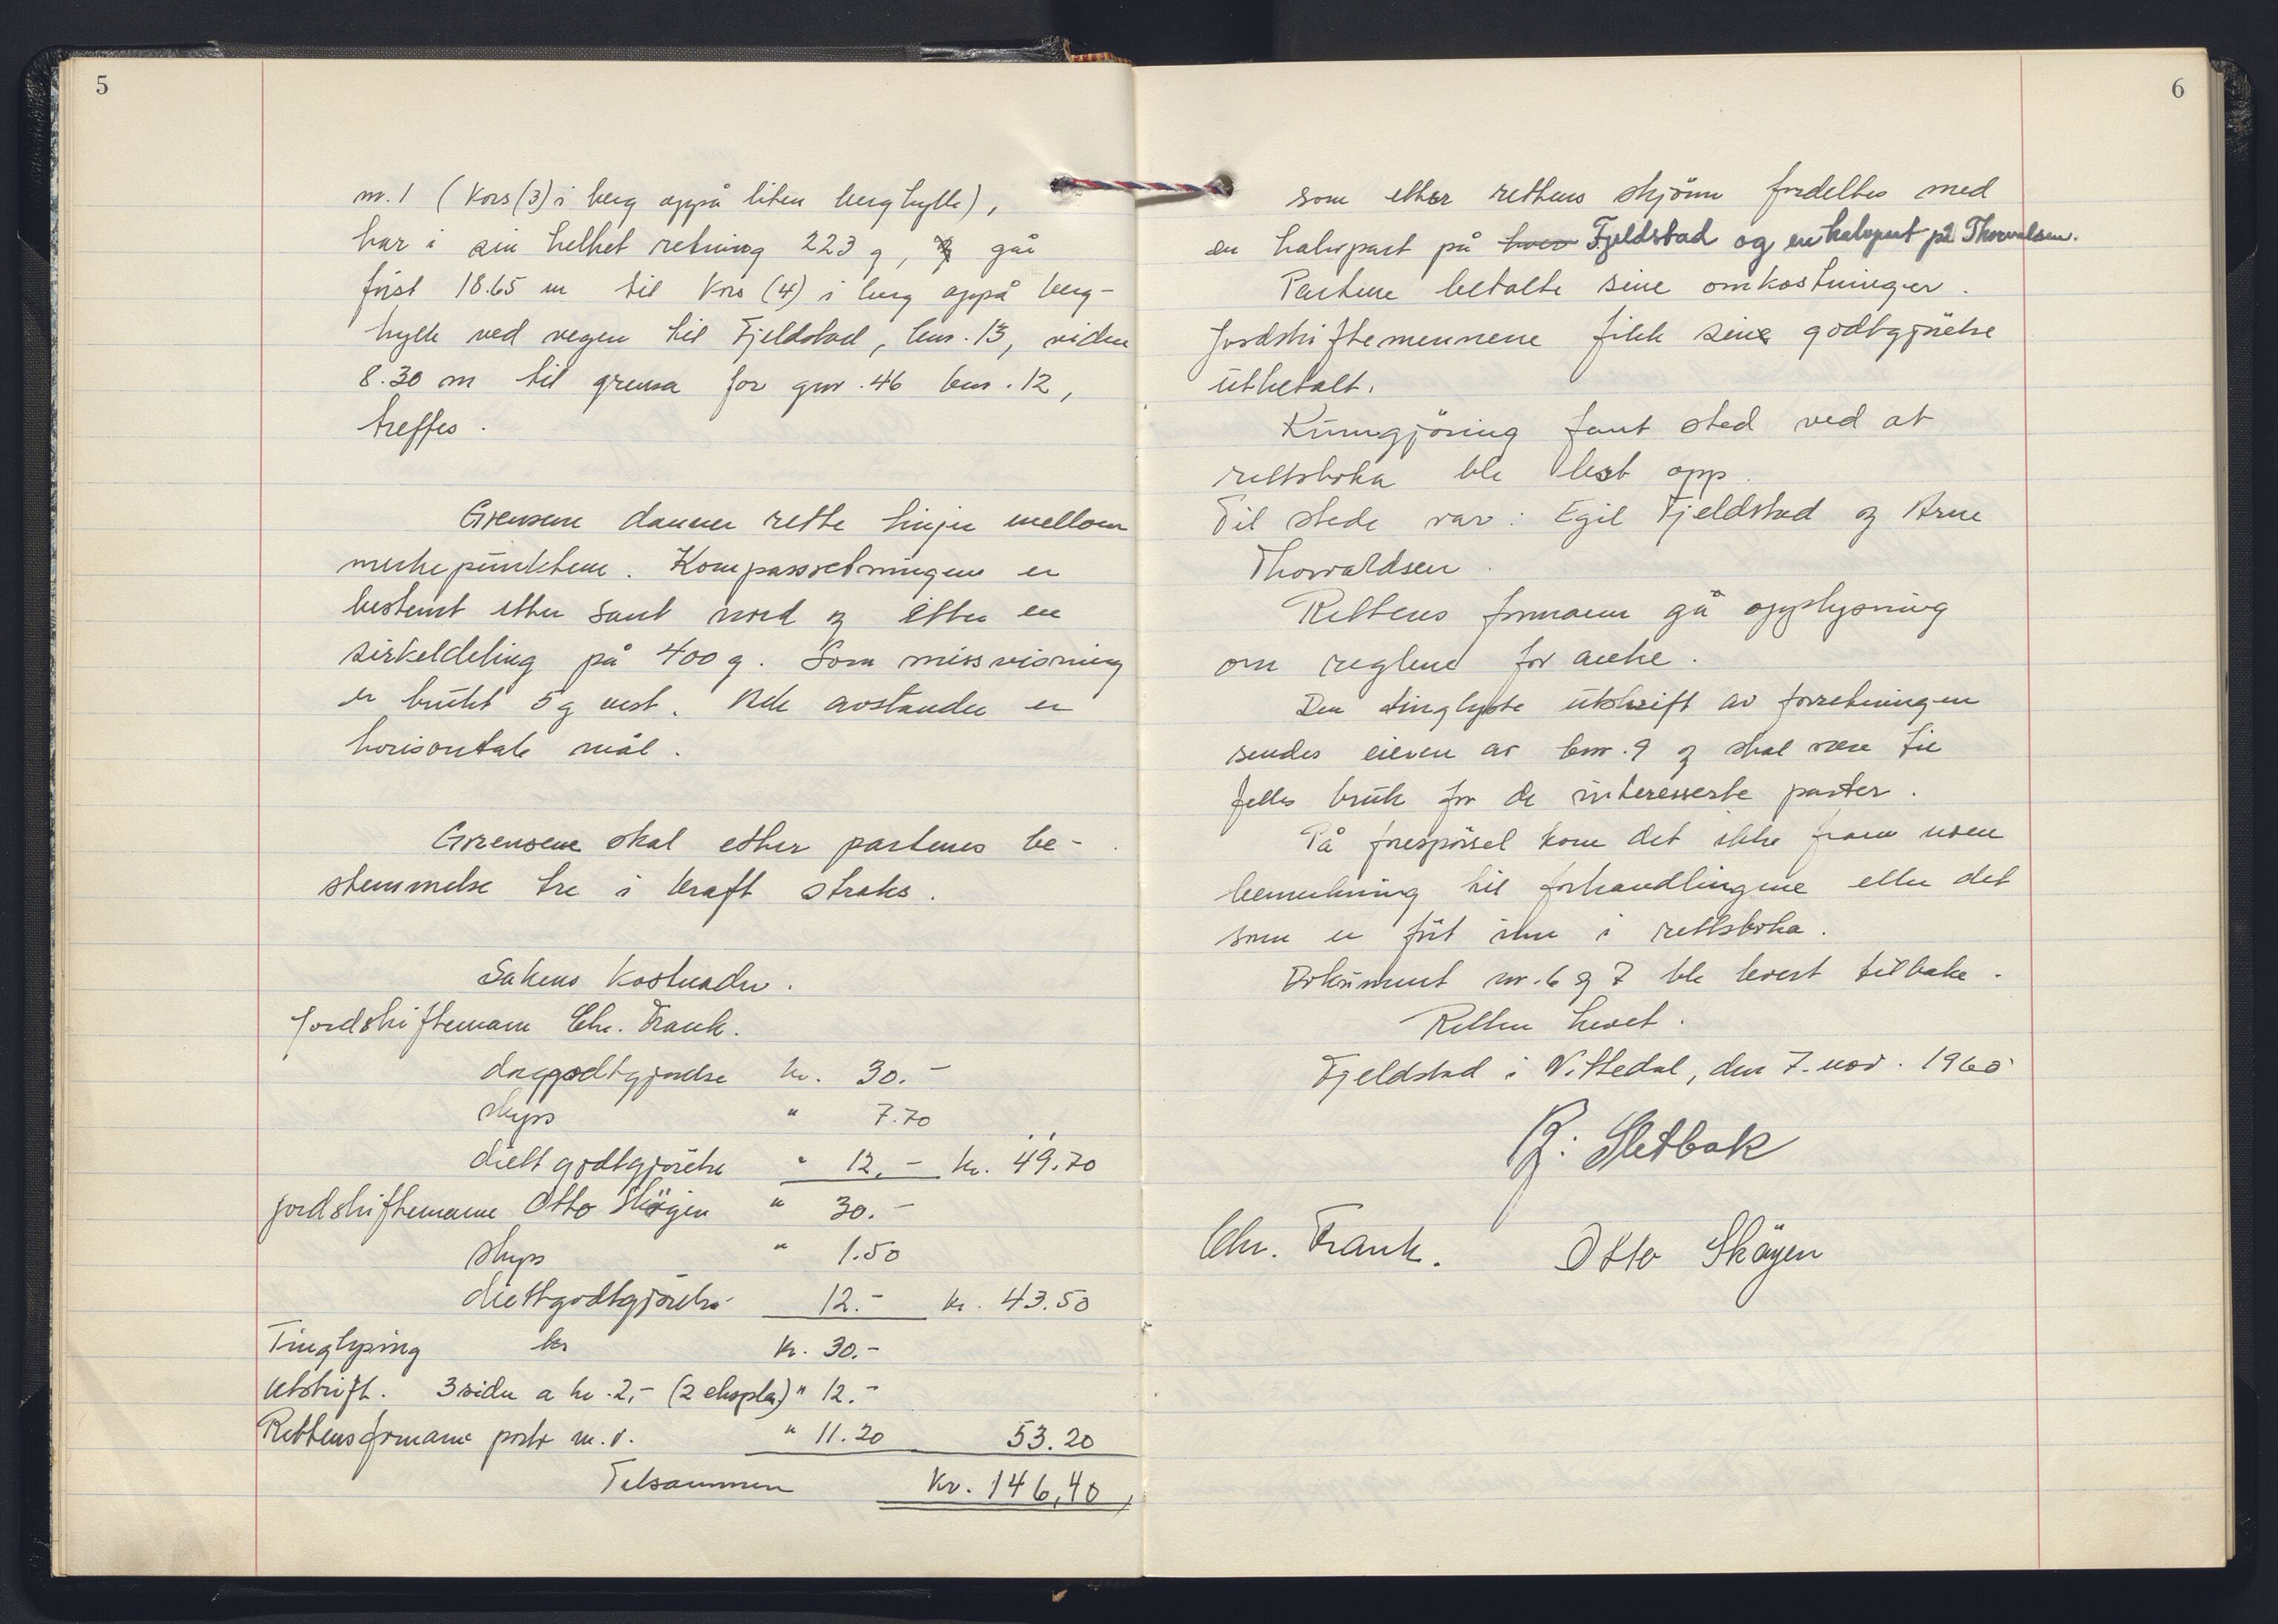 5
nr. 1 (Kors (3) i berg oppå liten berghylle),
har i sin helhet retning 223 g, går
først 18.65 m til Kors (4) i berg oppå berg-
hylle ved vegen til Fjeldstad, bnr. 13, viden
8.30 m til grensa for gnr. 46 bnr. 12,
treffes.
Grensene danner rette linjer mellom
merkepunktene. Kompassretningene er
bestemt etter sant nord og etter en
sirkeldeling på 400 g. Som missvisning
er brukt 5 g vest. Alle avstander er
horisontale mål.
Grensene skal etter partenes be-
stemmelse tre i kraft straks.
Sakens kostnader.
Jordskiftemann Chr. Frank.
daggodtgjørelse kr. 30.-
skyss " 7.70
diettgodtgjørelse " 12.- kr. 49.70
jordskiftemann Otto Skøyen " 30.-
skyss " 1.50
diettgodtgjørelse 12.- kr. 43.50
Tinglysing kr kr. 30.-
Utskrift. 3 sider a kr. 2,- (2 ekspla.) " 12.-
Rettensformann porto m.v. " 11.20 53.20
Tilsammen kr. 146,40
6
som etter rettens skjønn fordeltes med
en halvpart på hver Fjeldstad og en halvpart på Thorvaldsen.
Partene betalte sine omkostninger.
Jordskiftemennene fikk sine godtgjørelse
utbetalt.
Kunngjøring fant sted ved at
rettsboka ble lest opp.
Til stede var: Egil Fjeldstad og Arne
Thorvaldsen.
Rettens formann ga opplysning
om reglene for anke.
Den tinglyste utskrift av forretningen
sendes eieren av bnr. 9 og skal være til
felles bruk for de interesserte parter.
På forespørsel kom det ikke fram noen
bemerkning til forhandlingene eller det
som er ført inn i rettsboka.
Dokument nr. 6 og 7 ble levert tilbake.
Retten hevet.
Fjeldstad i Nittedal, den 7. nov. 1960
R: Sletbak
Chr. Frank. Otto Skøyen